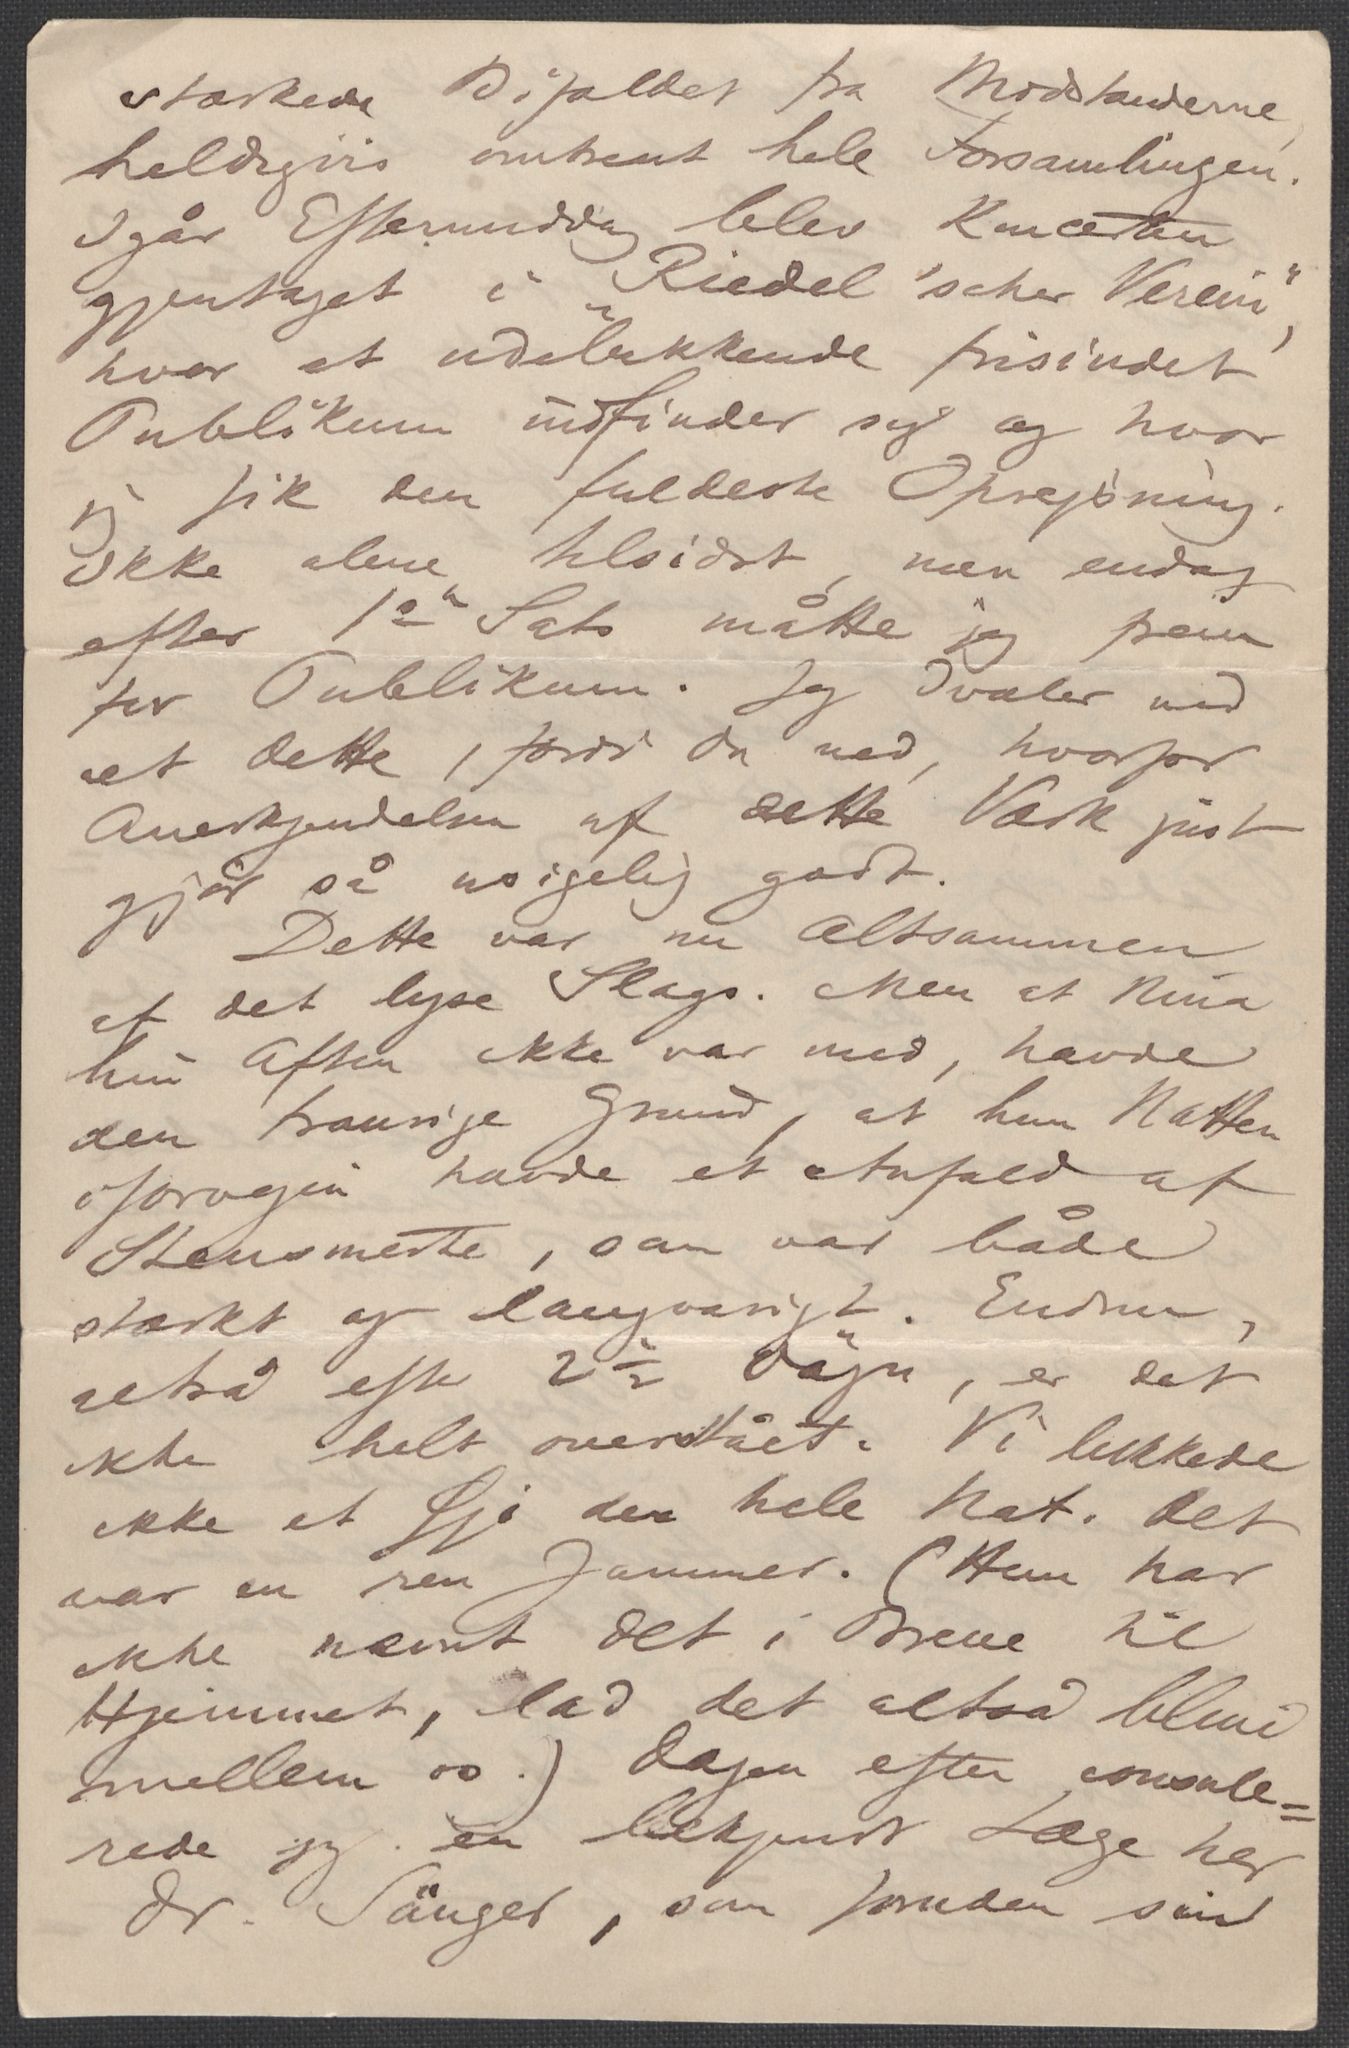 stærkede Bifaldet fra Modstanderne,
heldigvis omtrent hele Forsamlingen.
Igår Eftermiddag blev Koncerten
gjentaget i „Riedel'scher Verein",
hvor et udelukkende frisindet
Publikum indfinder sig og hvor
jeg fik den fuldeste Oprejsning.
Ikke alene tilsidst, men endog
efter 1ste Sats måtte jeg frem
for Publikum. Jeg dvæler ved
alt dette, fordi du ved, hvorfor
Anerkjendelsen af dette Værk just
gjør så usigelig godt.
Dette var nu altsammen
af det lyse Slags. Men at Nina
hin Aften ikke var med, havde
den traurige Grund, at hun Natten
iforvejen havde et Anfald af
Stensmerte, som var både
stærkt og langvarigt. Endnu,
altså efter 2½ Døgn, er det
ikke helt overstået. Vi lukkede
ikke et Øje den hele Nat. Det
var en ren Jammer. (Hun har
ikke nævnt det i Breve til
Hjemmet, lad det altså blive
mellem os.) Dagen efter consule=
rede jeg en bekjendt Læge her
Dr. Sänger, som foruden sin